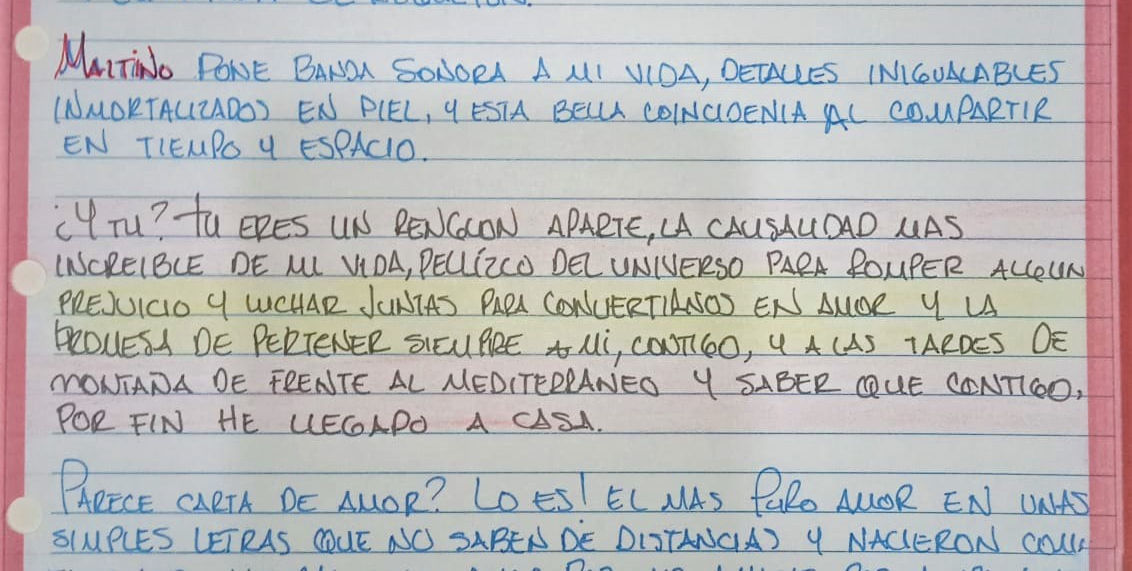 MALTINO PONE BANDA SONORA A MI VIDA, DETALLES INIGUALABLES
INMORTALIZADOS EN PIEL, Y ESTA BELLA COINCIDENIA AL COMPARTIR
EN TIEMPO Y ESPACIO.
¿Y TU? TU ERES UN RENGLON APARTE, LA CAUSALIDAD MAS
INCREIBLE DE MI VIDA, PELLÍZCO DEL UNIVERSO PARA ROMPER ALGUN
PREJUICIO Y LUCHAR JUNTAS PARA CONVERTIRNOS EN AMOR Y LA
PROMESA DE PERTENER SIEMPRE A MI, CONTIGO, Y A LAS TARDES DE
MONTAÑA DE FRENTE AL MEDITERRANEO Y SABER QUE CONTIGO,
POR FIN HE LLEGADO A CASA.
PARECE CARTA DE AMOR? LO ES! EL MAS PURO AMOR EN UNAS
SIMPLES LETRAS QUE NO SABEN DE DISTANCIAS Y NACIERON